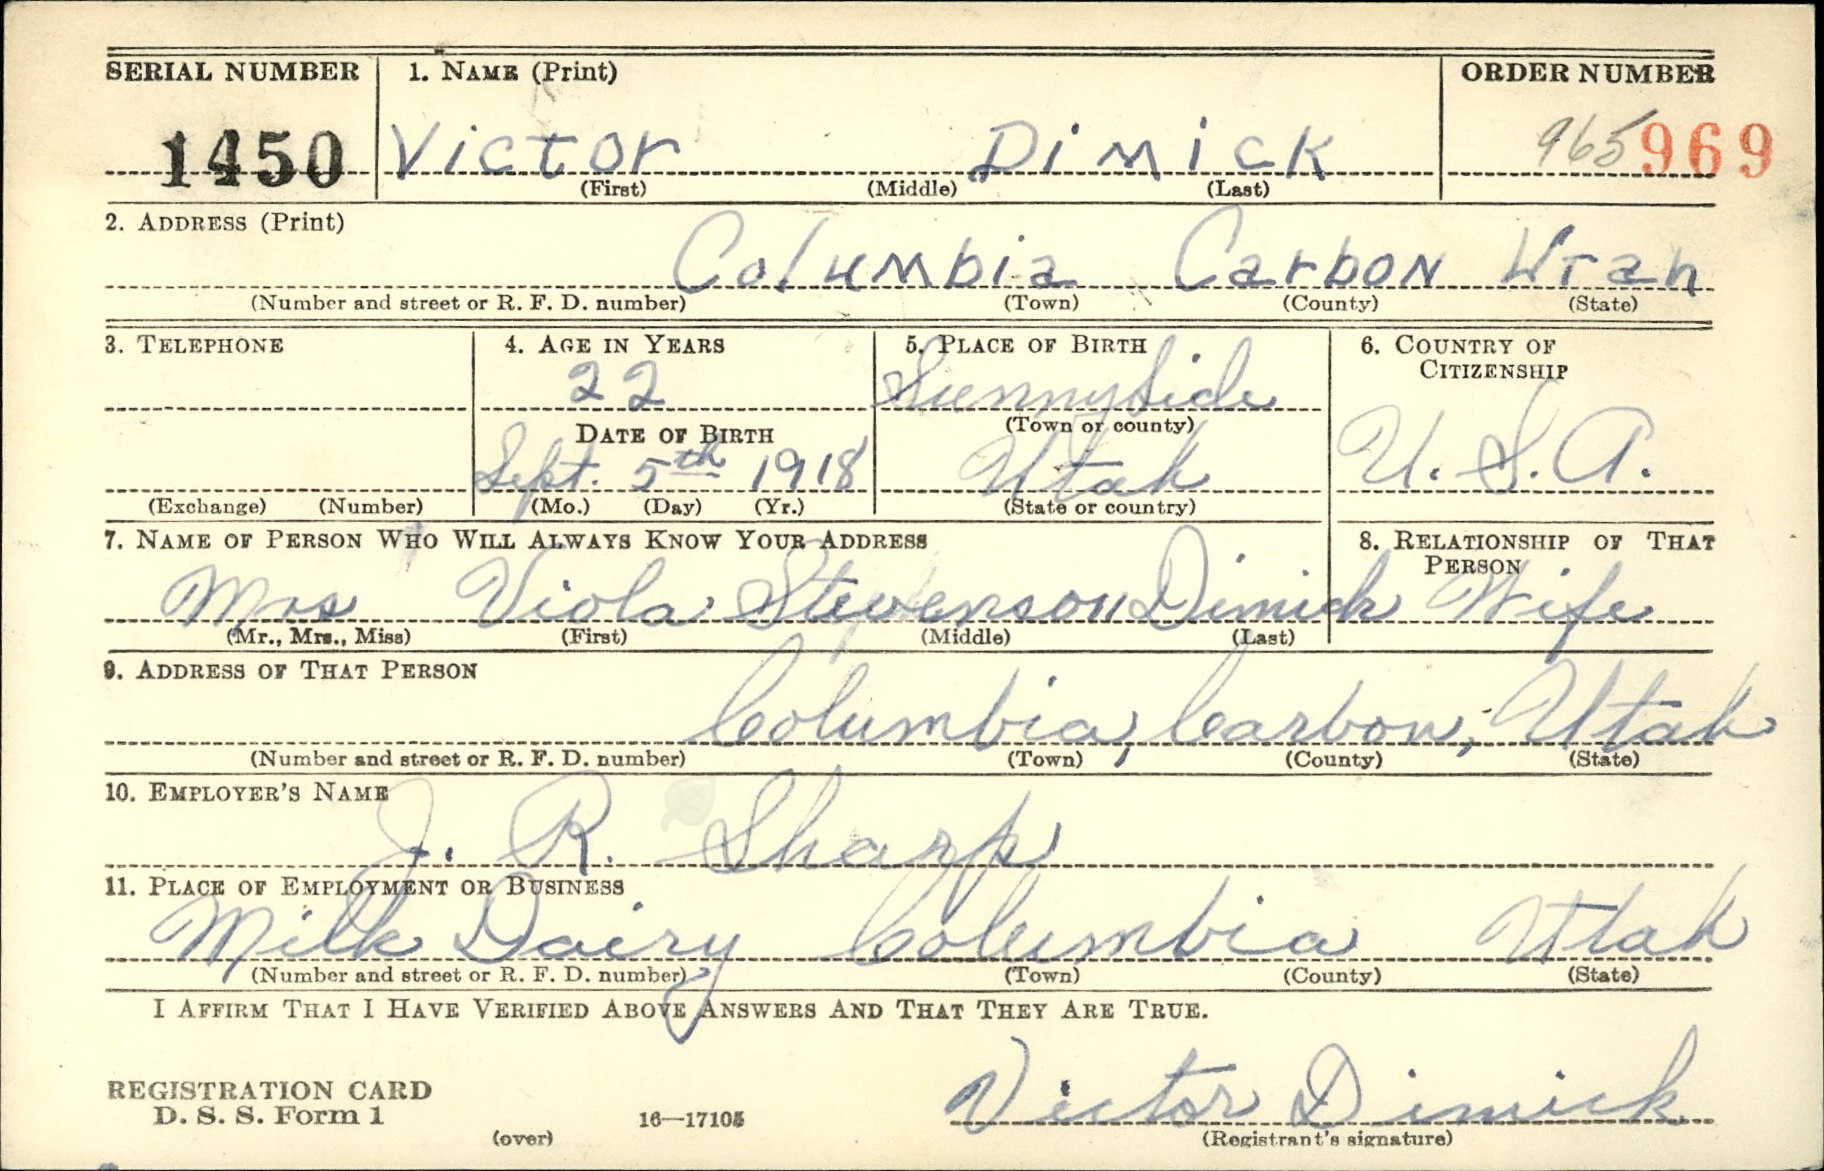 SERIAL NUMBER 1. NAME (Print) ORDER NUMBER
1450 Victor Dimick 965 969
(First) (Middle) (Last)
2. ADDRESS (Print)
Columbia Carbon Utah
(Number and street or R. F. D. number) (Town) (County) (State)
3. TELEPHONE 4. AGE IN YEARS 5. PLACE OF BIRTH 6. COUNTRY OF CITIZENSHIP
22 Sunnyside
(Town or county)
DATE OF BIRTH
Sept. 5th 1918 Utah U. S. A.
(Exchange) (Number) (Mo.) (Day) (Yr.) (State or country)
7. NAME OF PERSON WHO WILL ALWAYS KNOW YOUR ADDRESS 8. RELATIONSHIP OF THAT PERSON
Mrs Viola Stevenson Dimick Wife
(Mr., Mrs., Miss) (First) (Middle) (Last)
9. ADDRESS OF THAT PERSON
Columbia, Carbon, Utah
(Number and street or R. F. D. number) (Town) (County) (State)
10. EMPLOYER'S NAME
J. R. Sharp
11. PLACE OF EMPLOYMENT OR BUSINESS
Milk Dairy Columbia Utah
(Number and street or R. F. D. number) (Town) (County) (State)
I AFFIRM THAT I HAVE VERIFIED ABOVE ANSWERS AND THAT THEY ARE TRUE.
REGISTRATION CARD
D. S. S. Form 1 16—17105 Victor Dimick
(over) (Registrant's signature)